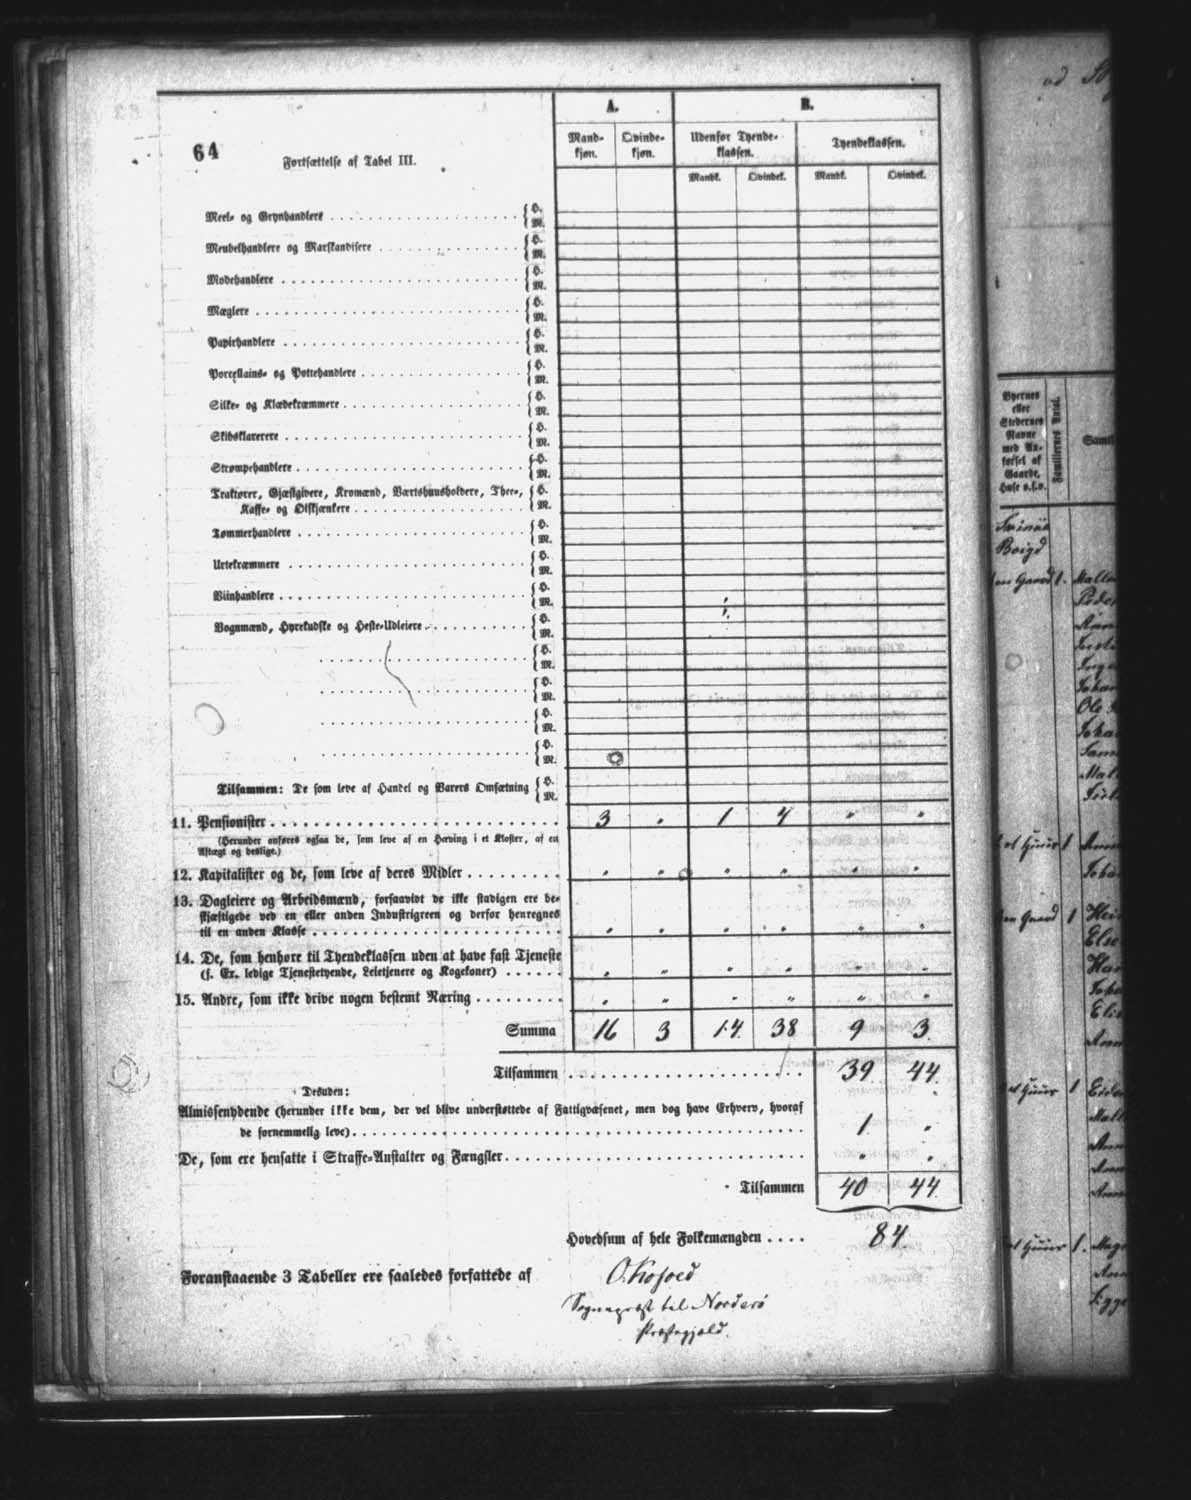 A. B.
64
Fortsættelse af Tabel III.
Mandkjøn. Qvindekjøn. Udenfor Tyendeklassen. Tyendeklassen.
Mandk. Qvindek. Mandk. Qvindek.
Meel- og Grynhandlere { H. M.
Meubelhandlere og Marskandisere { H. M.
Modehandlere { H. M.
Mæglere { H. M.
Papirhandlere { H. M.
Porcellains- og Pottehandlere { H. M.
Silke- og Klædekræmmere { H. M.
Skibsklarerere { H. M.
Strømpehandlere { H. M.
Traktører, Gjæstgivere, Kromænd, Værtshuusholdere, Thee-, { H.
Kaffe- og Ølskjænkere { M.
Tømmerhandlere { H. M.
Urtekræmmere { H. M.
Viinhandlere { H. M.
Vognmænd, Hyrekudske og Heste-Udleiere { H. M.
{ H. M.
{ H. M.
{ H. M.
{ H. M.
Tilsammen: De som leve af Handel og Varers Omsætning { H. M.
11. Pensionister 3 " 1 4 " "
(Herunder anføres ogsaa de, som leve af en Hæving i et Kloster, af en
Aftægt og deslige.)
12. Kapitalister og de, som leve af deres Midler " " " " " "
13. Dagleiere og Arbeidsmænd, forsaavidt de ikke stadigen ere be-
skjæftigede ved en eller anden Industrigreen og derfor henregnes
til en anden Klasse " " " " " "
14. De, som henhøre til Tyendeklassen uden at have fast Tjeneste
(f. Ex. ledige Tjenestetyende, Leietjenere og Kogekoner) " " " " " "
15. Andre, som ikke drive nogen bestemt Næring " " " " " "
Summa 16 3 14 38 9 3
Tilsammen 39 44
Desuden:
Almissenydende (herunder ikke dem, der vel blive understøttede af Fattigvæsenet, men dog have Erhverv, hvoraf
de fornemmelig leve) 1 "
De, som ere hensatte i Straffe-Anstalter og Fængsler " "
Tilsammen 40 44
Hovedsum af hele Folkemængden 84
Foranstaaende 3 Tabeller ere saaledes forfattede af O. Kofoed
Sognepræst til Norderø
Præstegjæld.
Byernes
eller
Stedernes
Navne
med An-
førsel af
Gaarde,
Huse o.s.v.
Familiernes Antal.
Svinöe
Boigd
en Gaard 1.
et Huus 1
en Gaard 1
et Huus 1
et Huus 1.